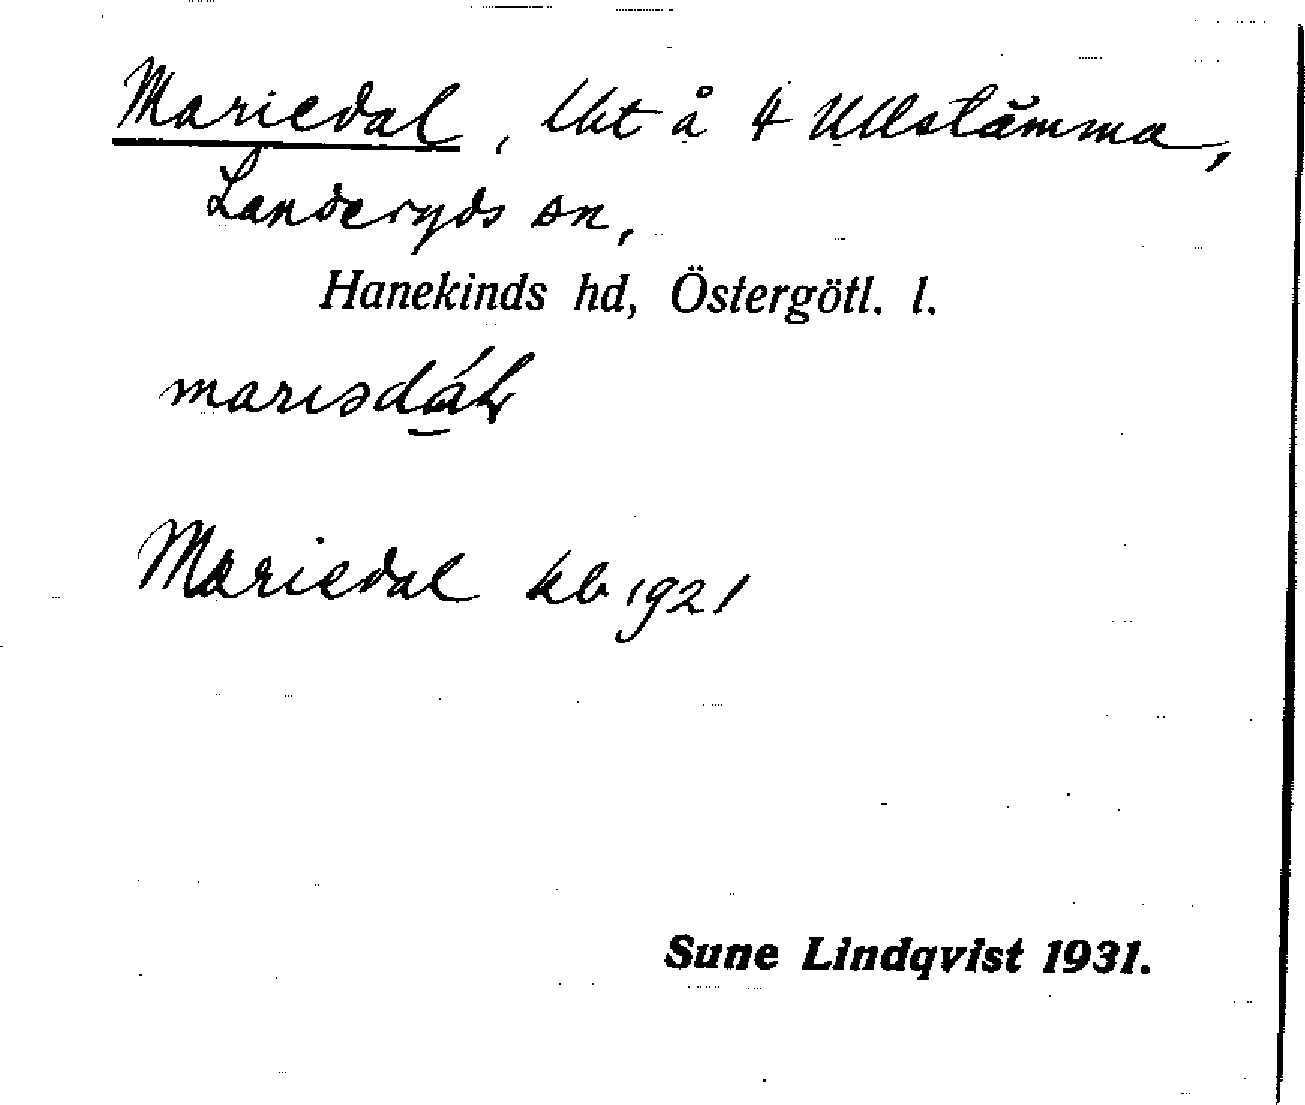 Mariedal, lht å 4 Ullstämma,
Landeryds sn,
Hanekinds hd, Östergötl. l.
Mariedal kb 1921
Sune Lindqvist 1931.